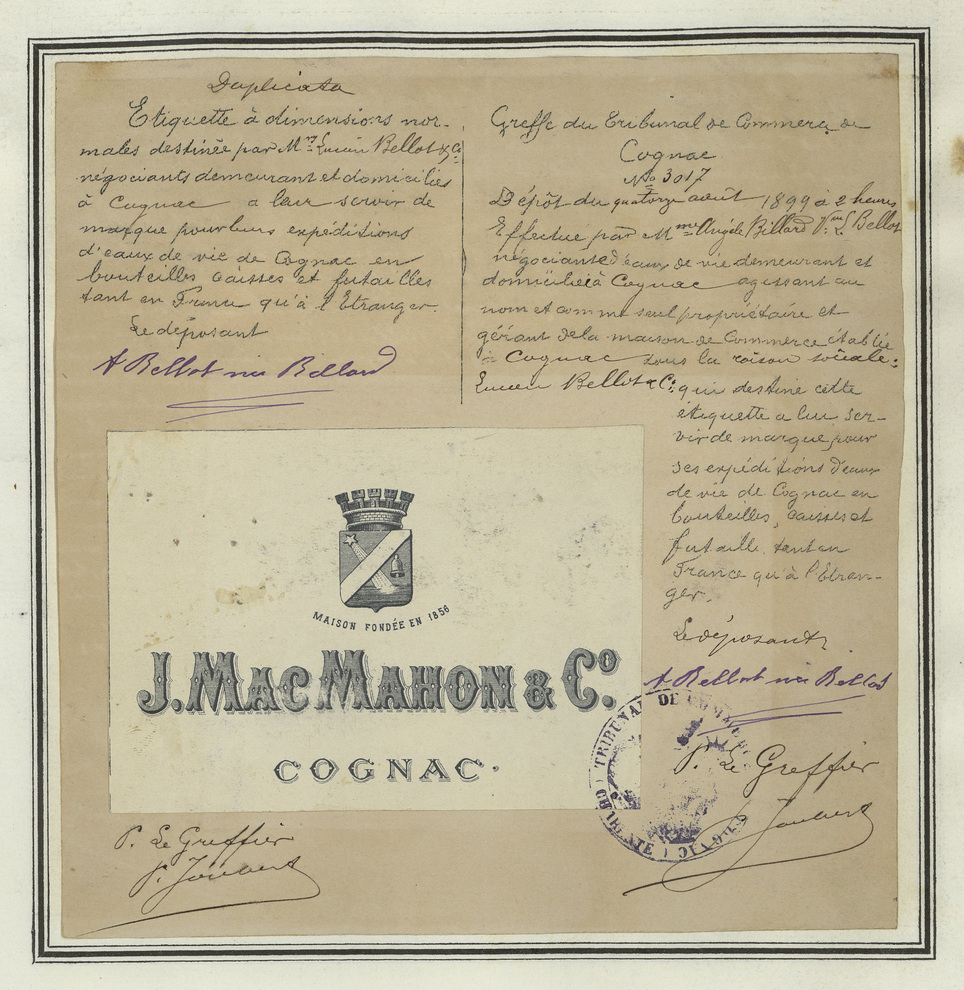 Duplicata
Etiquette à dimensions nor-
males destinée par Mrs Lucien Bellot & Cie
négociants demeurant et domiciliés
à Cognac a leur servir de
marque pour leurs expéditions
d'eaux de vie de Cognac en
bouteilles caisses et futailles
tant en France qu'à l'Etranger.
Le déposant
A Bellot née Billard
Greffe du Tribunal de Commerce de
Cognac
No 3017
Dépôt du quatorze août 1899 à 2 heures
Effectué par Mme Angèle Billard Vve L Bellot
négociante d'eaux de vie demeurant et
domiciliée à Cognac agissant au
nom et comme seul propriétaire et
gérant de la maison de Commerce établie
à Cognac sous la raison sociale:
Lucien Bellot & Cie qui destine cette
étiquette a lui ser-
vir de marque pour
ses expéditions d'eaux
de vie de Cognac en
bouteilles, caisses et
futaille tant en
France qu'à l'Etran-
ger.
Le déposant
A Bellot née Billard
MAISON FONDÉE EN 1856
J. MAC MAHON & Co.
COGNAC.
TRIBUNAL DE COMMERCE
P. Le Greffier
Joubert
P. Le Greffier
P. Joubert